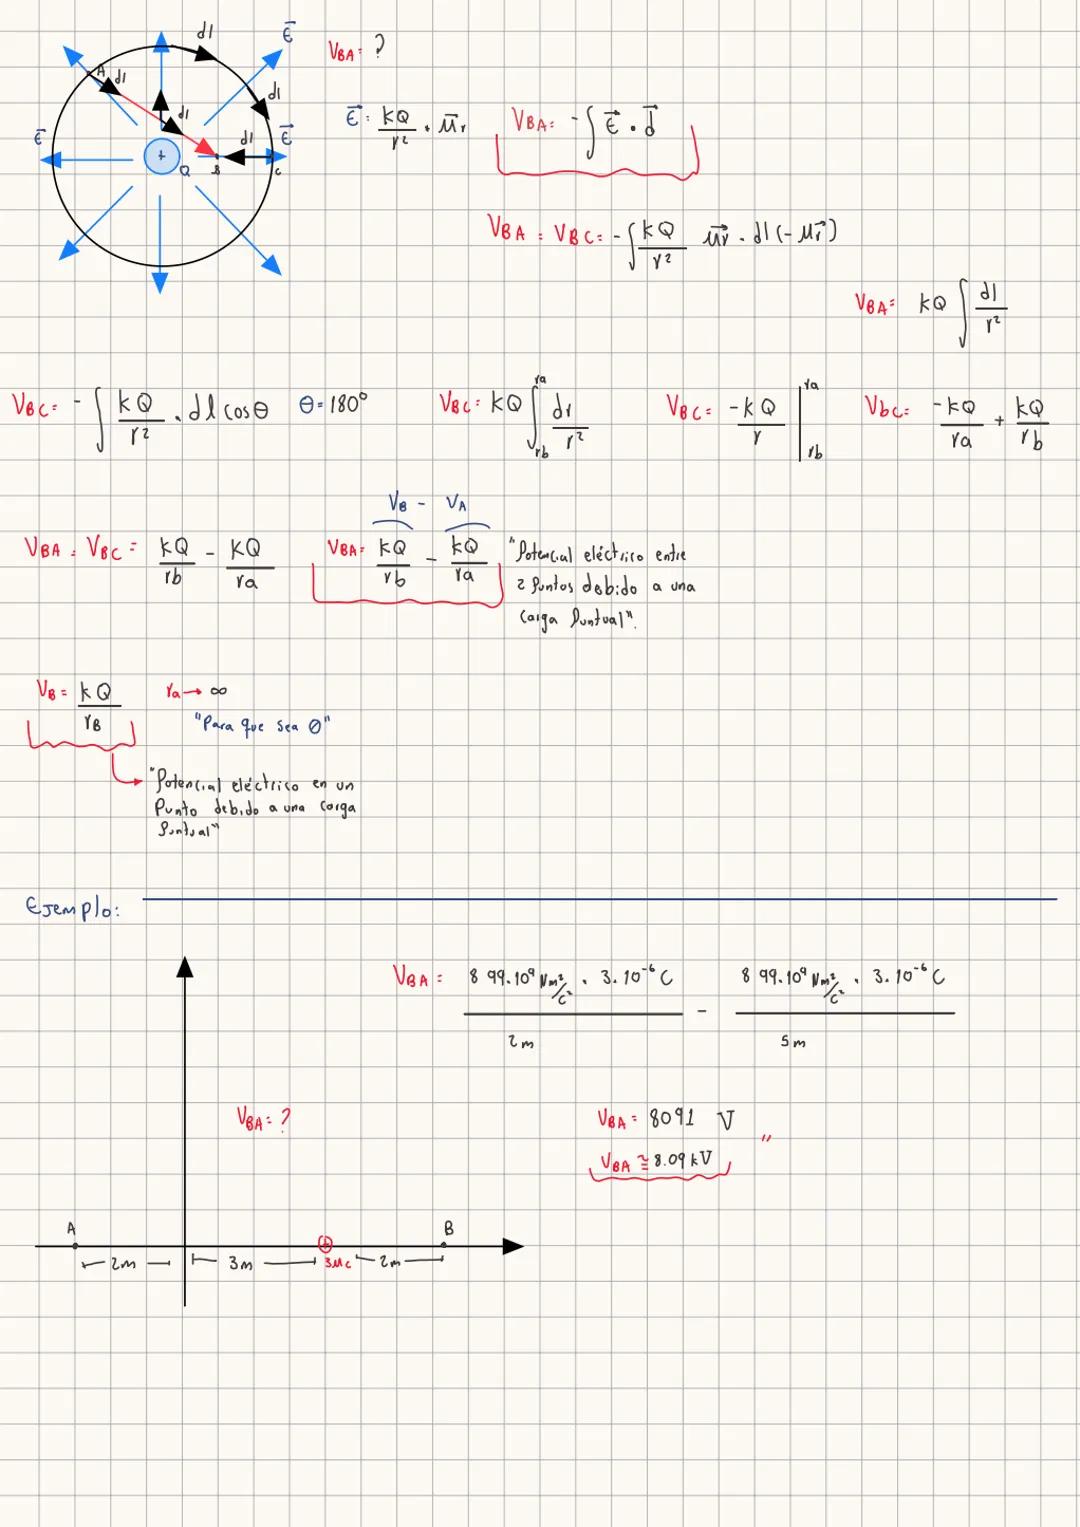 dl
E⃗
V_BA = ?
A
dl
dl
dl
E⃗ = kQ/r² · μ⃗r
V_BA = -∫ E⃗ · d⃗
E⃗
dl
E⃗
+
Q
B
C
V_BA = V_BC = -∫ kQ/r² μ⃗r · dl (-μ⃗r)
V_BA = kQ ∫ dl/r²
V_BC = -∫ kQ/r² · dl cosθ θ = 180°
V_BC = kQ ∫_rb^ra dr/r²
V_BC = -kQ/r |_rb^ra
Vbc = -kQ/ra + kQ/rb
V_B - V_A
V_BA = V_BC = kQ/rb - kQ/ra
V_BA = kQ/rb - kQ/ra
"Potencial eléctrico entre
2 Puntos debido a una
Carga Puntual"
V_B = kQ/r_B
ra → ∞
"Para que sea 0"
"Potencial eléctrico en un
Punto debido a una Carga
Puntual"
Ejemplo:
V_BA = 8 99.10⁹ Nm²/C² . 3.10⁻⁶ C / 2m - 8 99.10⁹ Nm²/C² . 3.10⁻⁶ C / 5m
V_BA = ?
V_BA = 8091 V
V_BA ≅ 8.09 kV "
A
B
2m
3m
+
3μc
2m